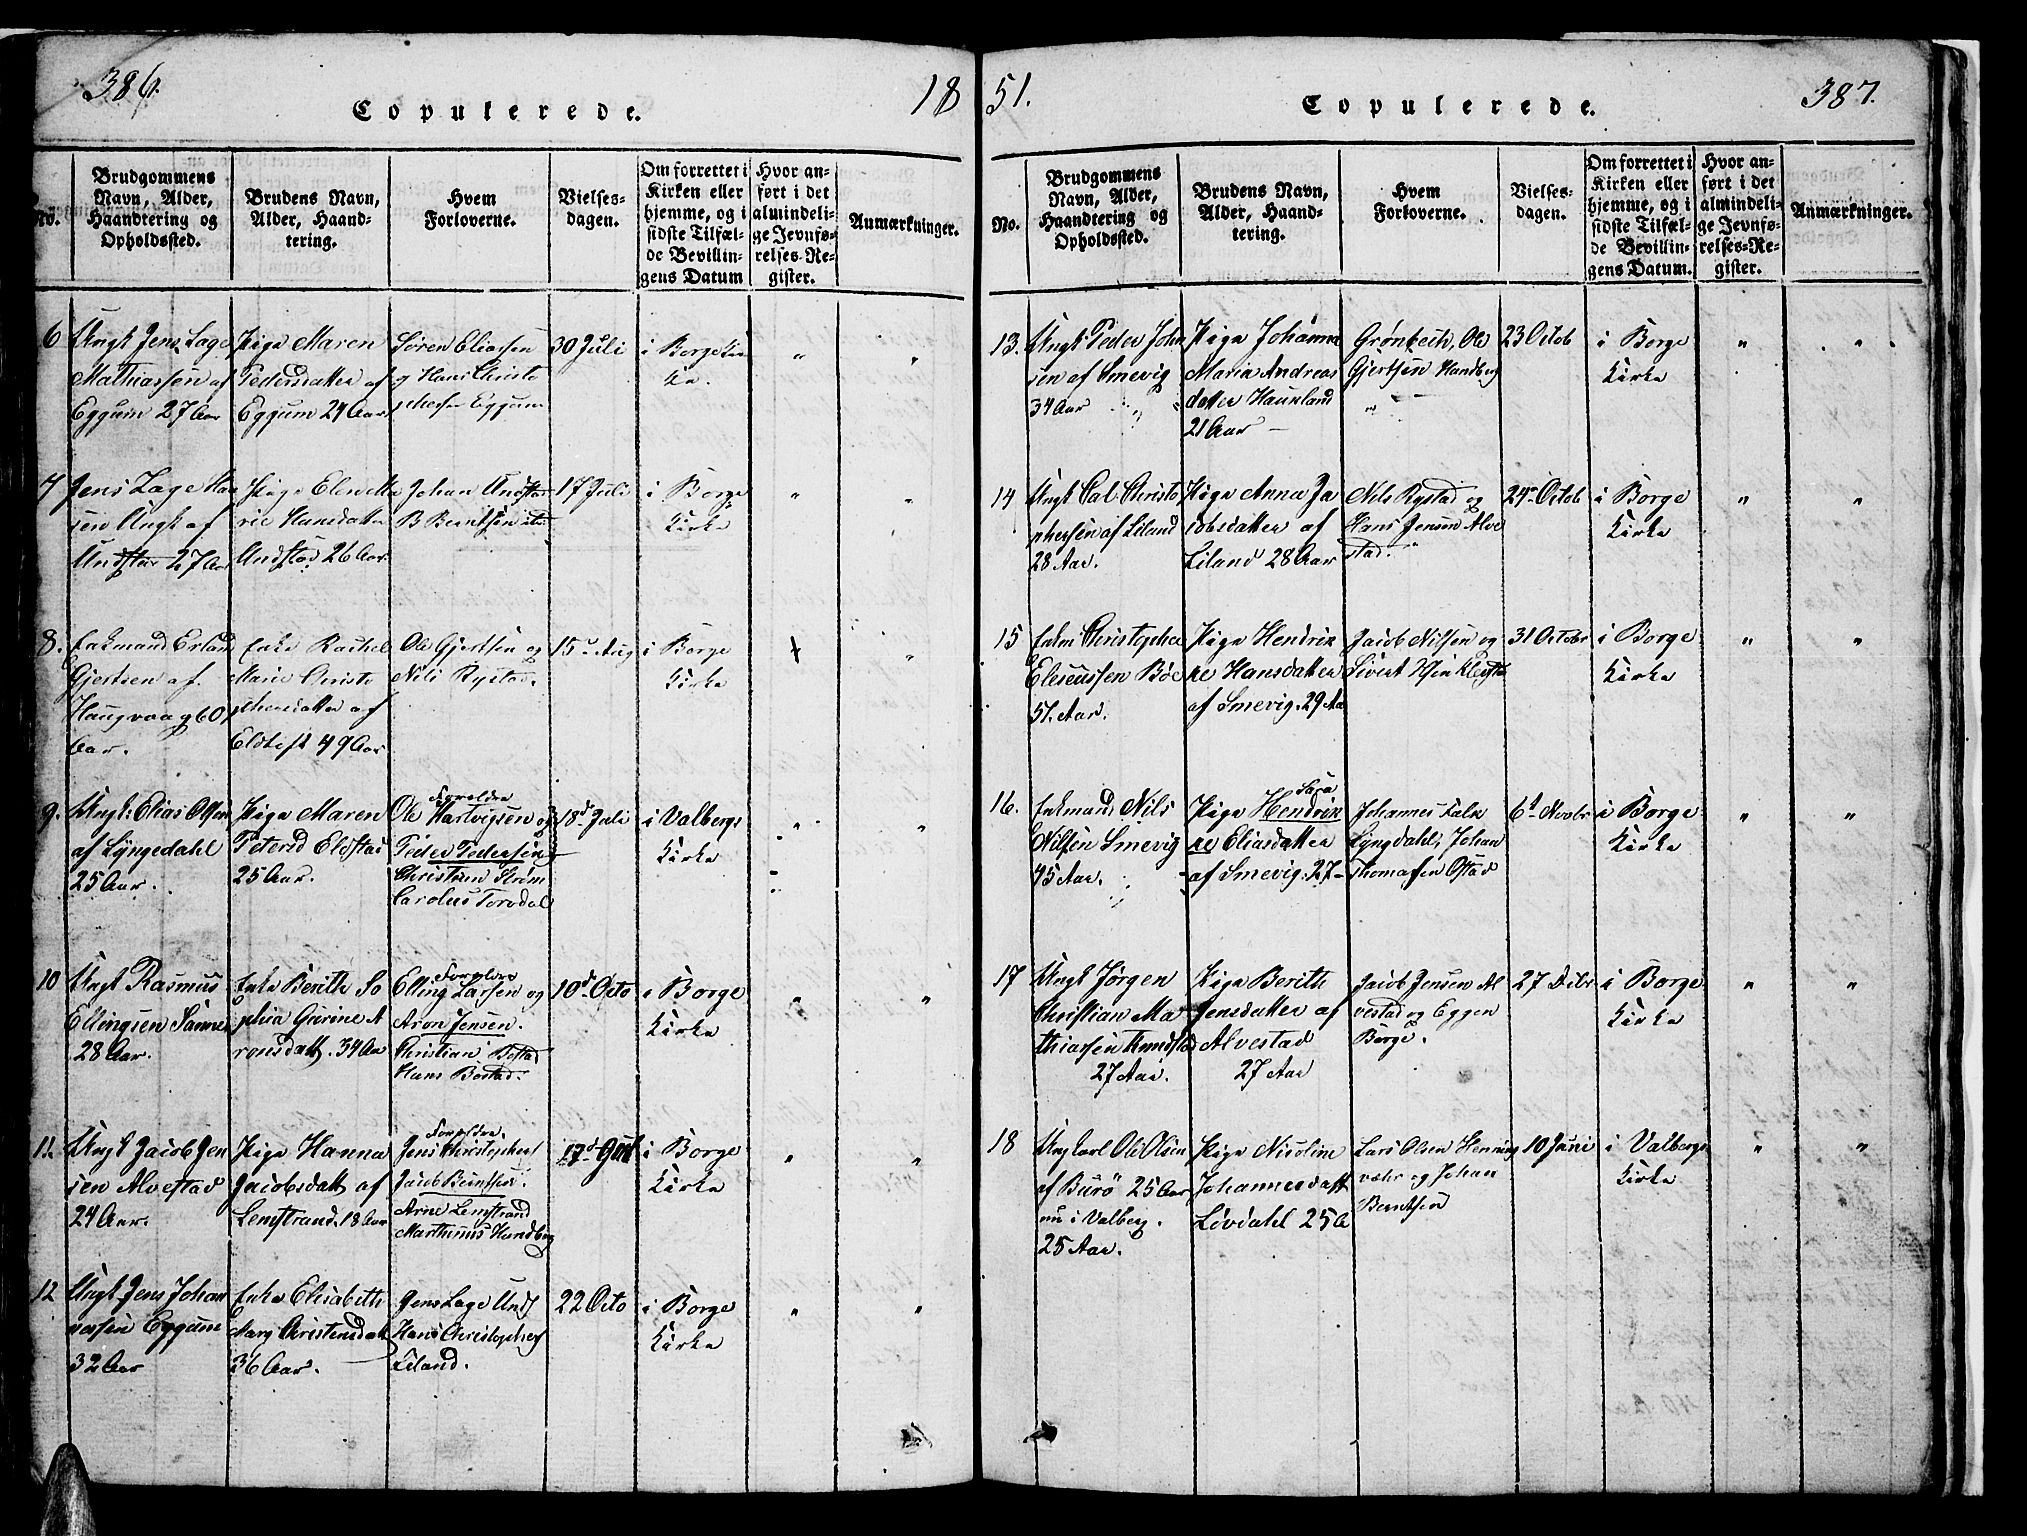 386.
Copulerede.
18
No.
Brudgommens
Navn, Alder,
Haandtering og
Opholdssted.
Brudens Navn,
Alder, Haand-
tering.
Hvem
Forloverne.
Vielses-
dagen.
Om forrettet i
Kirken eller
hjemme, og i
sidste Tilfæl-
de Bevillin-
gens Datum
Hvor an-
ført i det
almindeli-
ge Jevnfø-
relses-Re-
gister.
Anmærkninger.
6
Ungk Jens Lage
Mathiassen af
Eggum 27 Aar
Pige Maren
Pedersdatter af
Eggum 24 Aar
Søren Eliassen
og Hans Christo
phersen Eggum
30 Juli
i Borge
7
Jens Lage
sen Ungk af
27 Aar
Pige
rie Hansdatter
Undstad 26 Aar
Johan
B Berntsen
17 Juli
i Borge
Kirke
8.
Enkmand Erland
Gjertsen af
Haugvaag 60
Aar.
Enke Rachel
Marie Christo
phersdatter af
49 Aar
Ole Gjertsen og
Nils Rystad.
15 Aug
i Borge
Kirke
9.
Ungk: Elias Olsen
af Lyngedahl
25 Aar.
Pige Maren
Petersd
25 Aar.
Foreldre
Ole Hartvigsen og
Peder Pedersen
Christen Strøm
Carolus Torvdal
18d Juli
i Valbergs
Kirke
10
Ungk Rasmus
Ellingsen
28 Aar.
Enke Berith So
phia Gurine A
ronsdatt. 34 Aar
Foreldre
Elling Larsen og
Aron Jensen.
Christian Bostad
Hans Bostad.
10d Octo
i Borge
Kirke
11.
Ungk Jacob Jen
sen Alvestad
24 Aar.
Pige Hanna
Jacobsdatt af
Lemstrand. 18 Aar
Foreldre.
Jens Christophers
Jacob Berntsen.
Arne Lemstrand
Marthinus Handberg
i Borge
Kirke
12
Ungk Jens Johan
nesen Eggum
32 Aar
Enke Elisabeth
Marg Christensdatt
36 Aar.
Jens Lage Unds
Hans Christophers
Liland.
22 Octo
i Borge
Kirke
51.
Copulerede.
387.
No.
Brudgommens
Navn, Alder,
Haandtering og
Opholdssted.
Brudens Navn,
Alder, Haand-
tering.
Hvem
Forloverne.
Vielses-
dagen.
Om forrettet i
Kirken eller
hjemme, og i
sidste Tilfæl-
de Bevillin-
gens Datum.
Hvor an-
ført i det
almindeli-
ge Jevnfø-
relses-Re-
gister.
Anmærkninger.
13.
Ungk: Peder John
sen af Smevig
34 Aar
Pige Johanna
Maria Andreas
datter Haunland
21 Aar
Grønbech, Ole
Gjertsen Handberg
23 Octob
i Borge
Kirke
14
Ungk Carl Christo
phersen af Liland
28 Aar.
Pige Anna Ja
cobsdatter af
Liland 28 Aar
Nils Rystad og
Hans Jensen Alve
stad.
24 Octob
i Borge
Kirke
15
Enkm Christopher
Eleseussen Bøe
51. Aar.
Pige Hendrik
ke Hansdatter
af Smevig. 29 Aa
Jacob Nilsen og
Sivert
31 Octobr
i Borge
Kirke
16.
Enkmand Nils
Nilsen Smevig
45 Aar.
Sara
Pige Hendrik
ke Eliasdatter
af Smevig. 27
Johannes Falk
Lyngdahl, Johan
Thomassen Ostad
6d Novbr
i Borge
Kirke
17
Ungk Jørgen
Christian Ma
thiassen
27 Aar.
Pige Berith
Jensdatter af
Alvestad
27 Aar
Jacob Jensen Al
vestad og Eggen
Borge.
27 Debr
i Borge
Kirke
18
Ungkarl Ole Olsen
af Burø 25 Aar
nu i Valberg.
25 Aar.
Pige Nicoline
Johannesdatt
Lövdahl 25 A
Lars Olsen Henning
vær og Johan
Berntsen
10 Juni
i Valbergs
Kirke